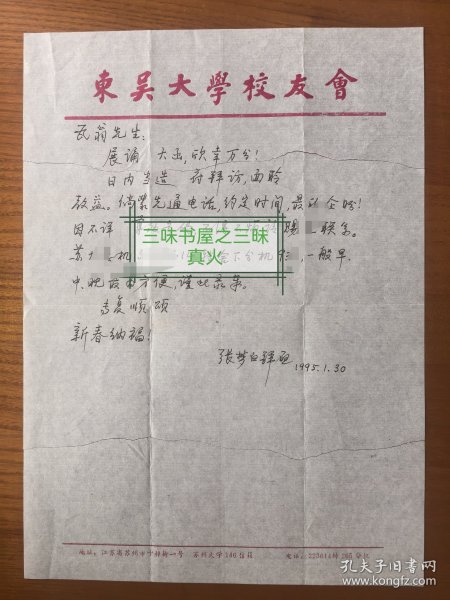 東吴大學校友會
瓦翁先生:
展诵 大函,欣幸万分!
日内当造 府拜访,面聆
教益。倘蒙先通电话,约定时间,最所企盼!
因不详 联系。
三味书屋之三昧
真火
苏 机 分机 一般早、
中、晚最为方便,谨此奉
专复顺颂
新春纳福!
张梦白拜启 1995.1.30
地址:江苏省苏州市十梓街一号 苏州大学146信箱 电话:223614转 分机
孔夫子旧书网
www.kongfz.com